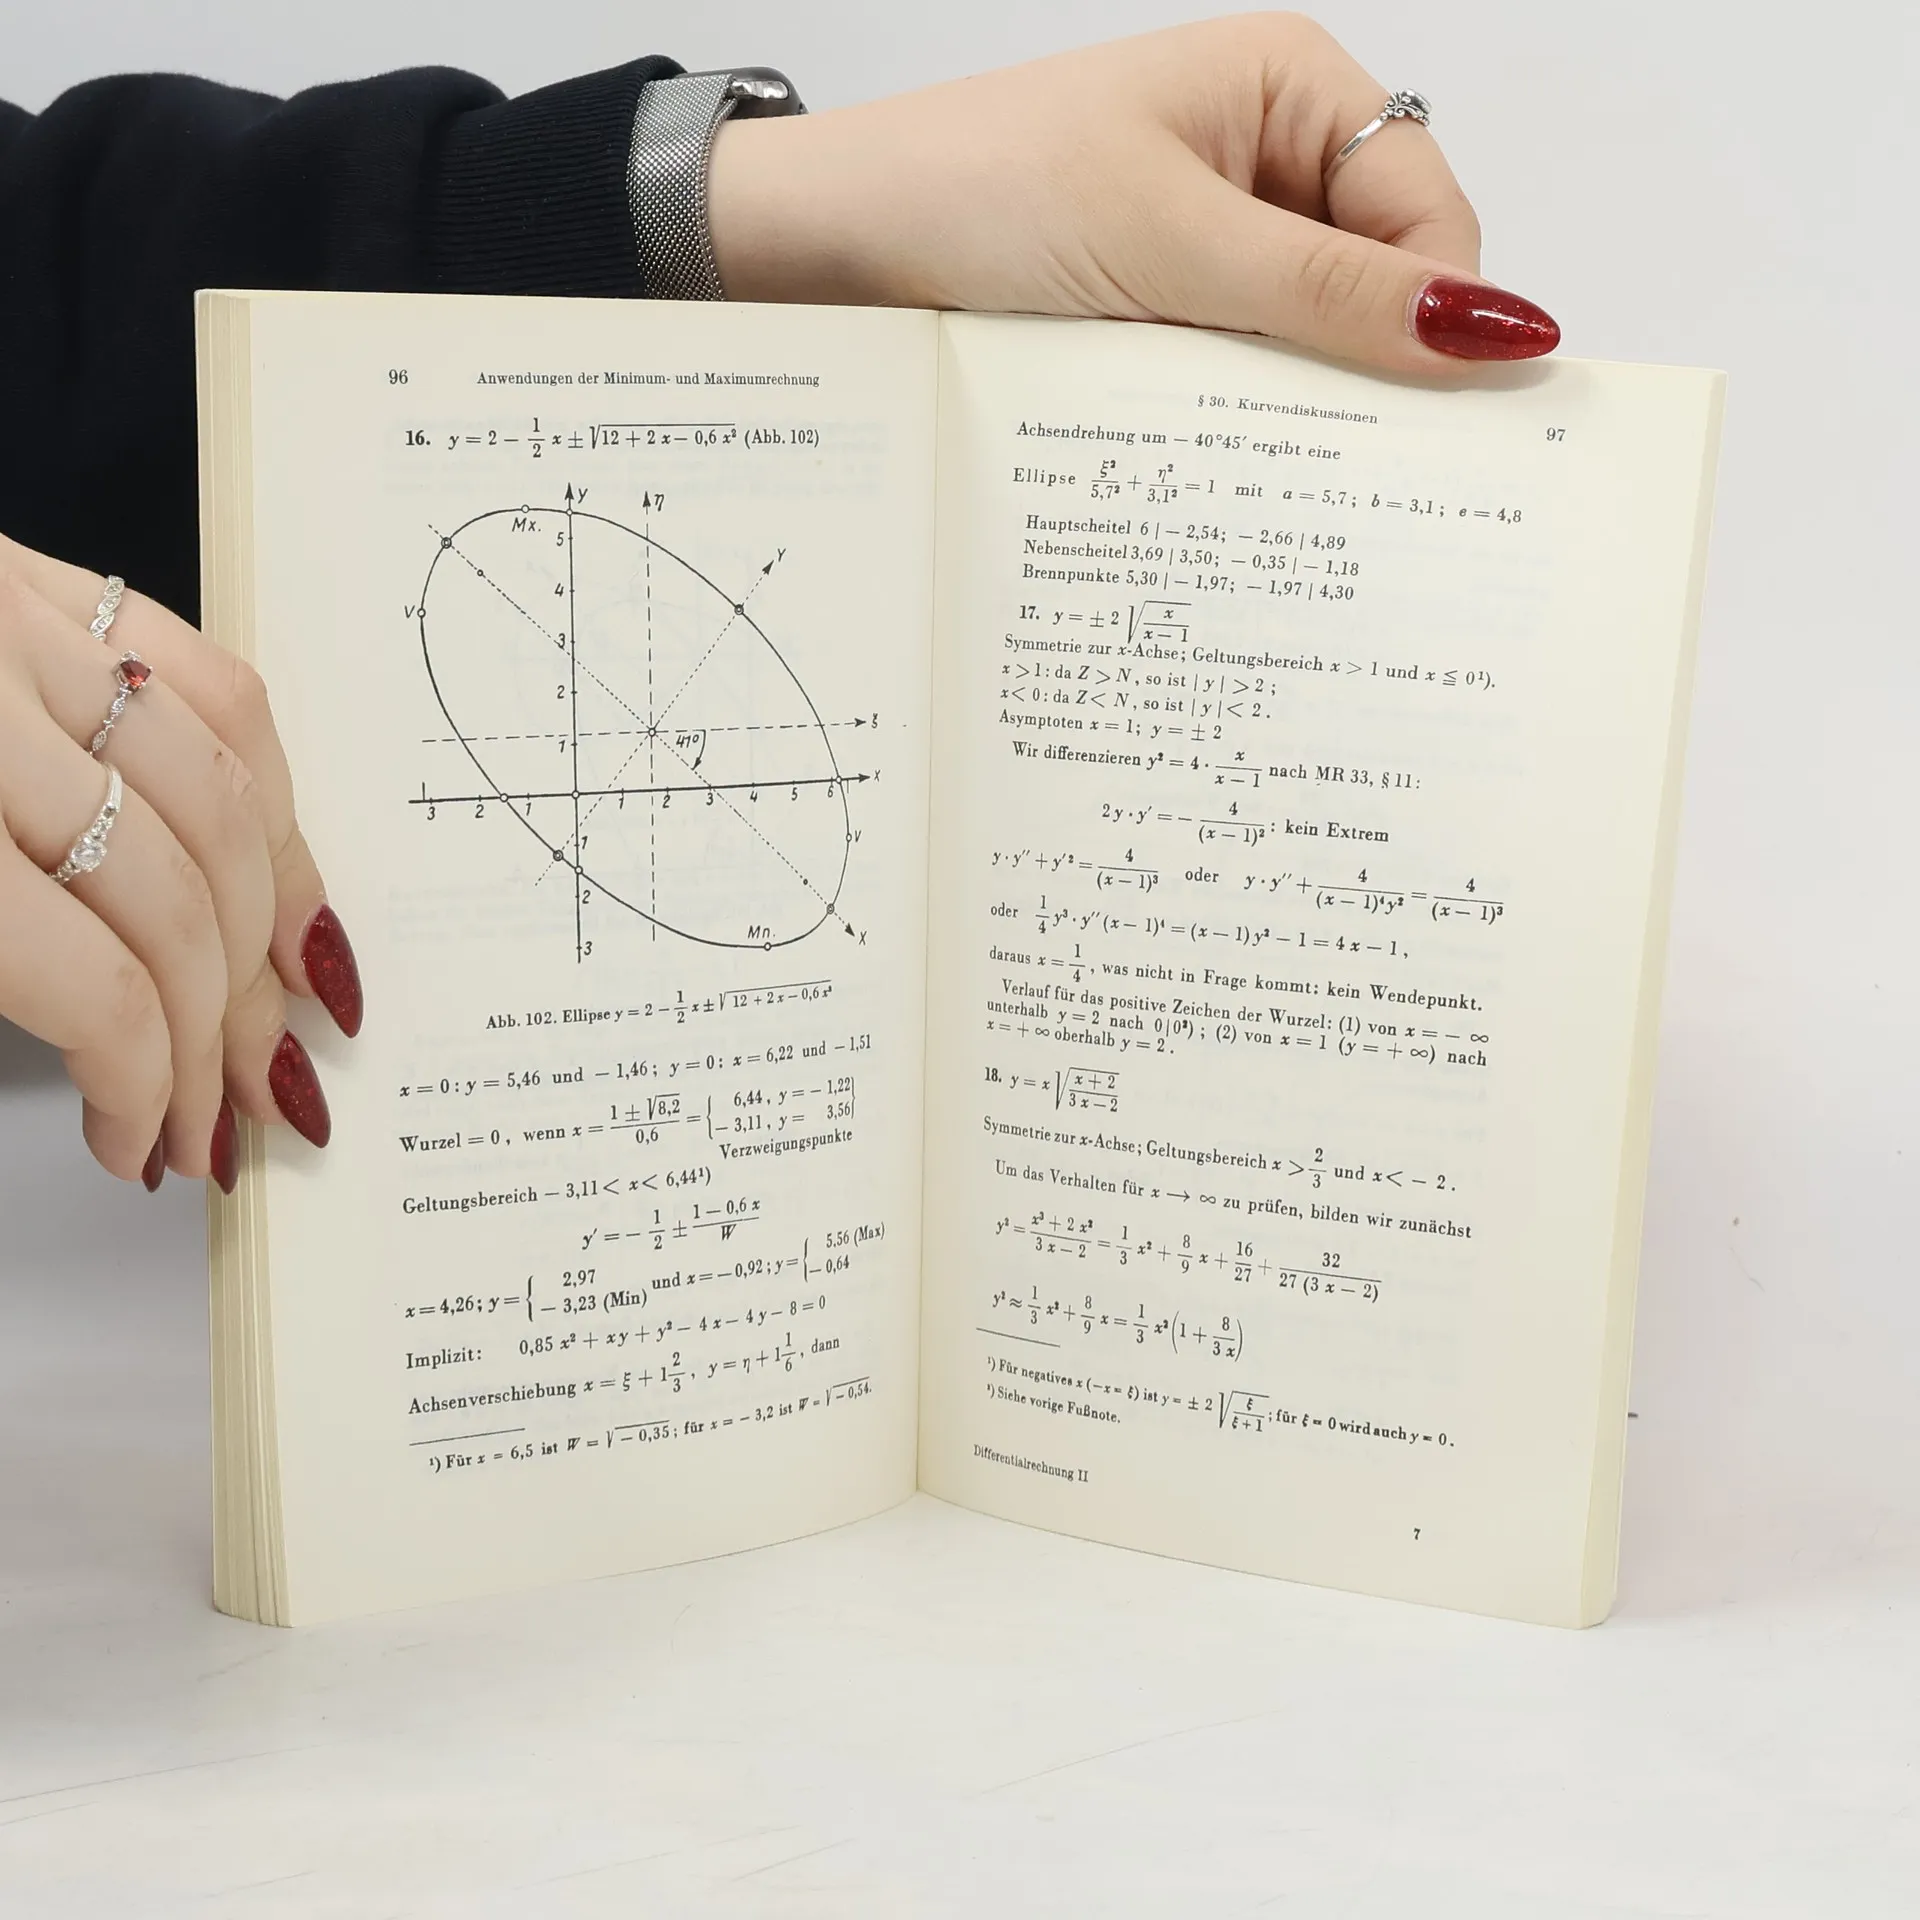 96 Anwendungen der Minimum- und Maximumrechnung
16. y = 2 − 1/2 x ± √(12 + 2 x − 0,6 x²) (Abb. 102)
y η
Mx.
5
Y
4
V
3
2
ξ
1 41°
x
3 2 1 1 2 3 4 5 6
1 V
2
Mn. X
3
Abb. 102. Ellipse y = 2 − 1/2 x ± √(12 + 2 x − 0,6 x²)
x = 0 : y = 5,46 und − 1,46 ; y = 0 : x = 6,22 und − 1,51
Wurzel = 0 , wenn x = (1 ± √8,2)/0,6 = { 6,44 , y = − 1,22 } { − 3,11 , y = 3,56 }
Verzweigungspunkte
Geltungsbereich − 3,11 < x < 6,44¹)
y′ = − 1/2 ± (1 − 0,6 x)/W
x = 4,26 ; y = { 2,97 { − 3,23 (Min) und x = − 0,92 ; y = { 5,56 (Max) { − 0,64
Implizit: 0,85 x² + xy + y² − 4 x − 4 y − 8 = 0
Achsenverschiebung x = ξ + 1 2/3 , y = η + 1 1/6 , dann
¹) Für x = 6,5 ist W = √− 0,35 ; für x = − 3,2 ist W = √− 0,54.
§ 30. Kurvendiskussionen 97
Achsendrehung um − 40°45′ ergibt eine
Ellipse ξ²/5,7² + η²/3,1² = 1 mit a = 5,7 ; b = 3,1 ; e = 4,8
Hauptscheitel 6 | − 2,54; − 2,66 | 4,89
Nebenscheitel 3,69 | 3,50; − 0,35 | − 1,18
Brennpunkte 5,30 | − 1,97; − 1,97 | 4,30
17. y = ± 2 √(x/(x − 1))
Symmetrie zur x-Achse; Geltungsbereich x > 1 und x ≦ 0¹).
x > 1 : da Z > N, so ist | y | > 2 ;
x < 0 : da Z < N, so ist | y | < 2 .
Asymptoten x = 1; y = ± 2
Wir differenzieren y² = 4 · x/(x − 1) nach MR 33, § 11 :
2 y · y′ = − 4/(x − 1)² : kein Extrem
y · y″ + y′² = 4/(x − 1)³ oder y · y″ + 4/((x − 1)⁴y²) = 4/(x − 1)³
oder 1/4 y³ · y″ (x − 1)⁴ = (x − 1) y² − 1 = 4 x − 1 ,
daraus x = 1/4 , was nicht in Frage kommt: kein Wendepunkt.
Verlauf für das positive Zeichen der Wurzel: (1) von x = − ∞
unterhalb y = 2 nach 0|0²) ; (2) von x = 1 (y = + ∞) nach
x = + ∞ oberhalb y = 2 .
18. y = x √((x + 2)/(3 x − 2))
Symmetrie zur x-Achse; Geltungsbereich x > 2/3 und x < − 2 .
Um das Verhalten für x → ∞ zu prüfen, bilden wir zunächst
y² = (x³ + 2 x²)/(3 x − 2) = 1/3 x² + 8/9 x + 16/27 + 32/(27 (3 x − 2))
y² ≈ 1/3 x² + 8/9 x = 1/3 x² (1 + 8/(3 x))
¹) Für negatives x (−x = ξ) ist y = ± 2 √(ξ/(ξ + 1)) ; für ξ = 0 wird auch y = 0 .
²) Siehe vorige Fußnote.
Differentialrechnung II
7